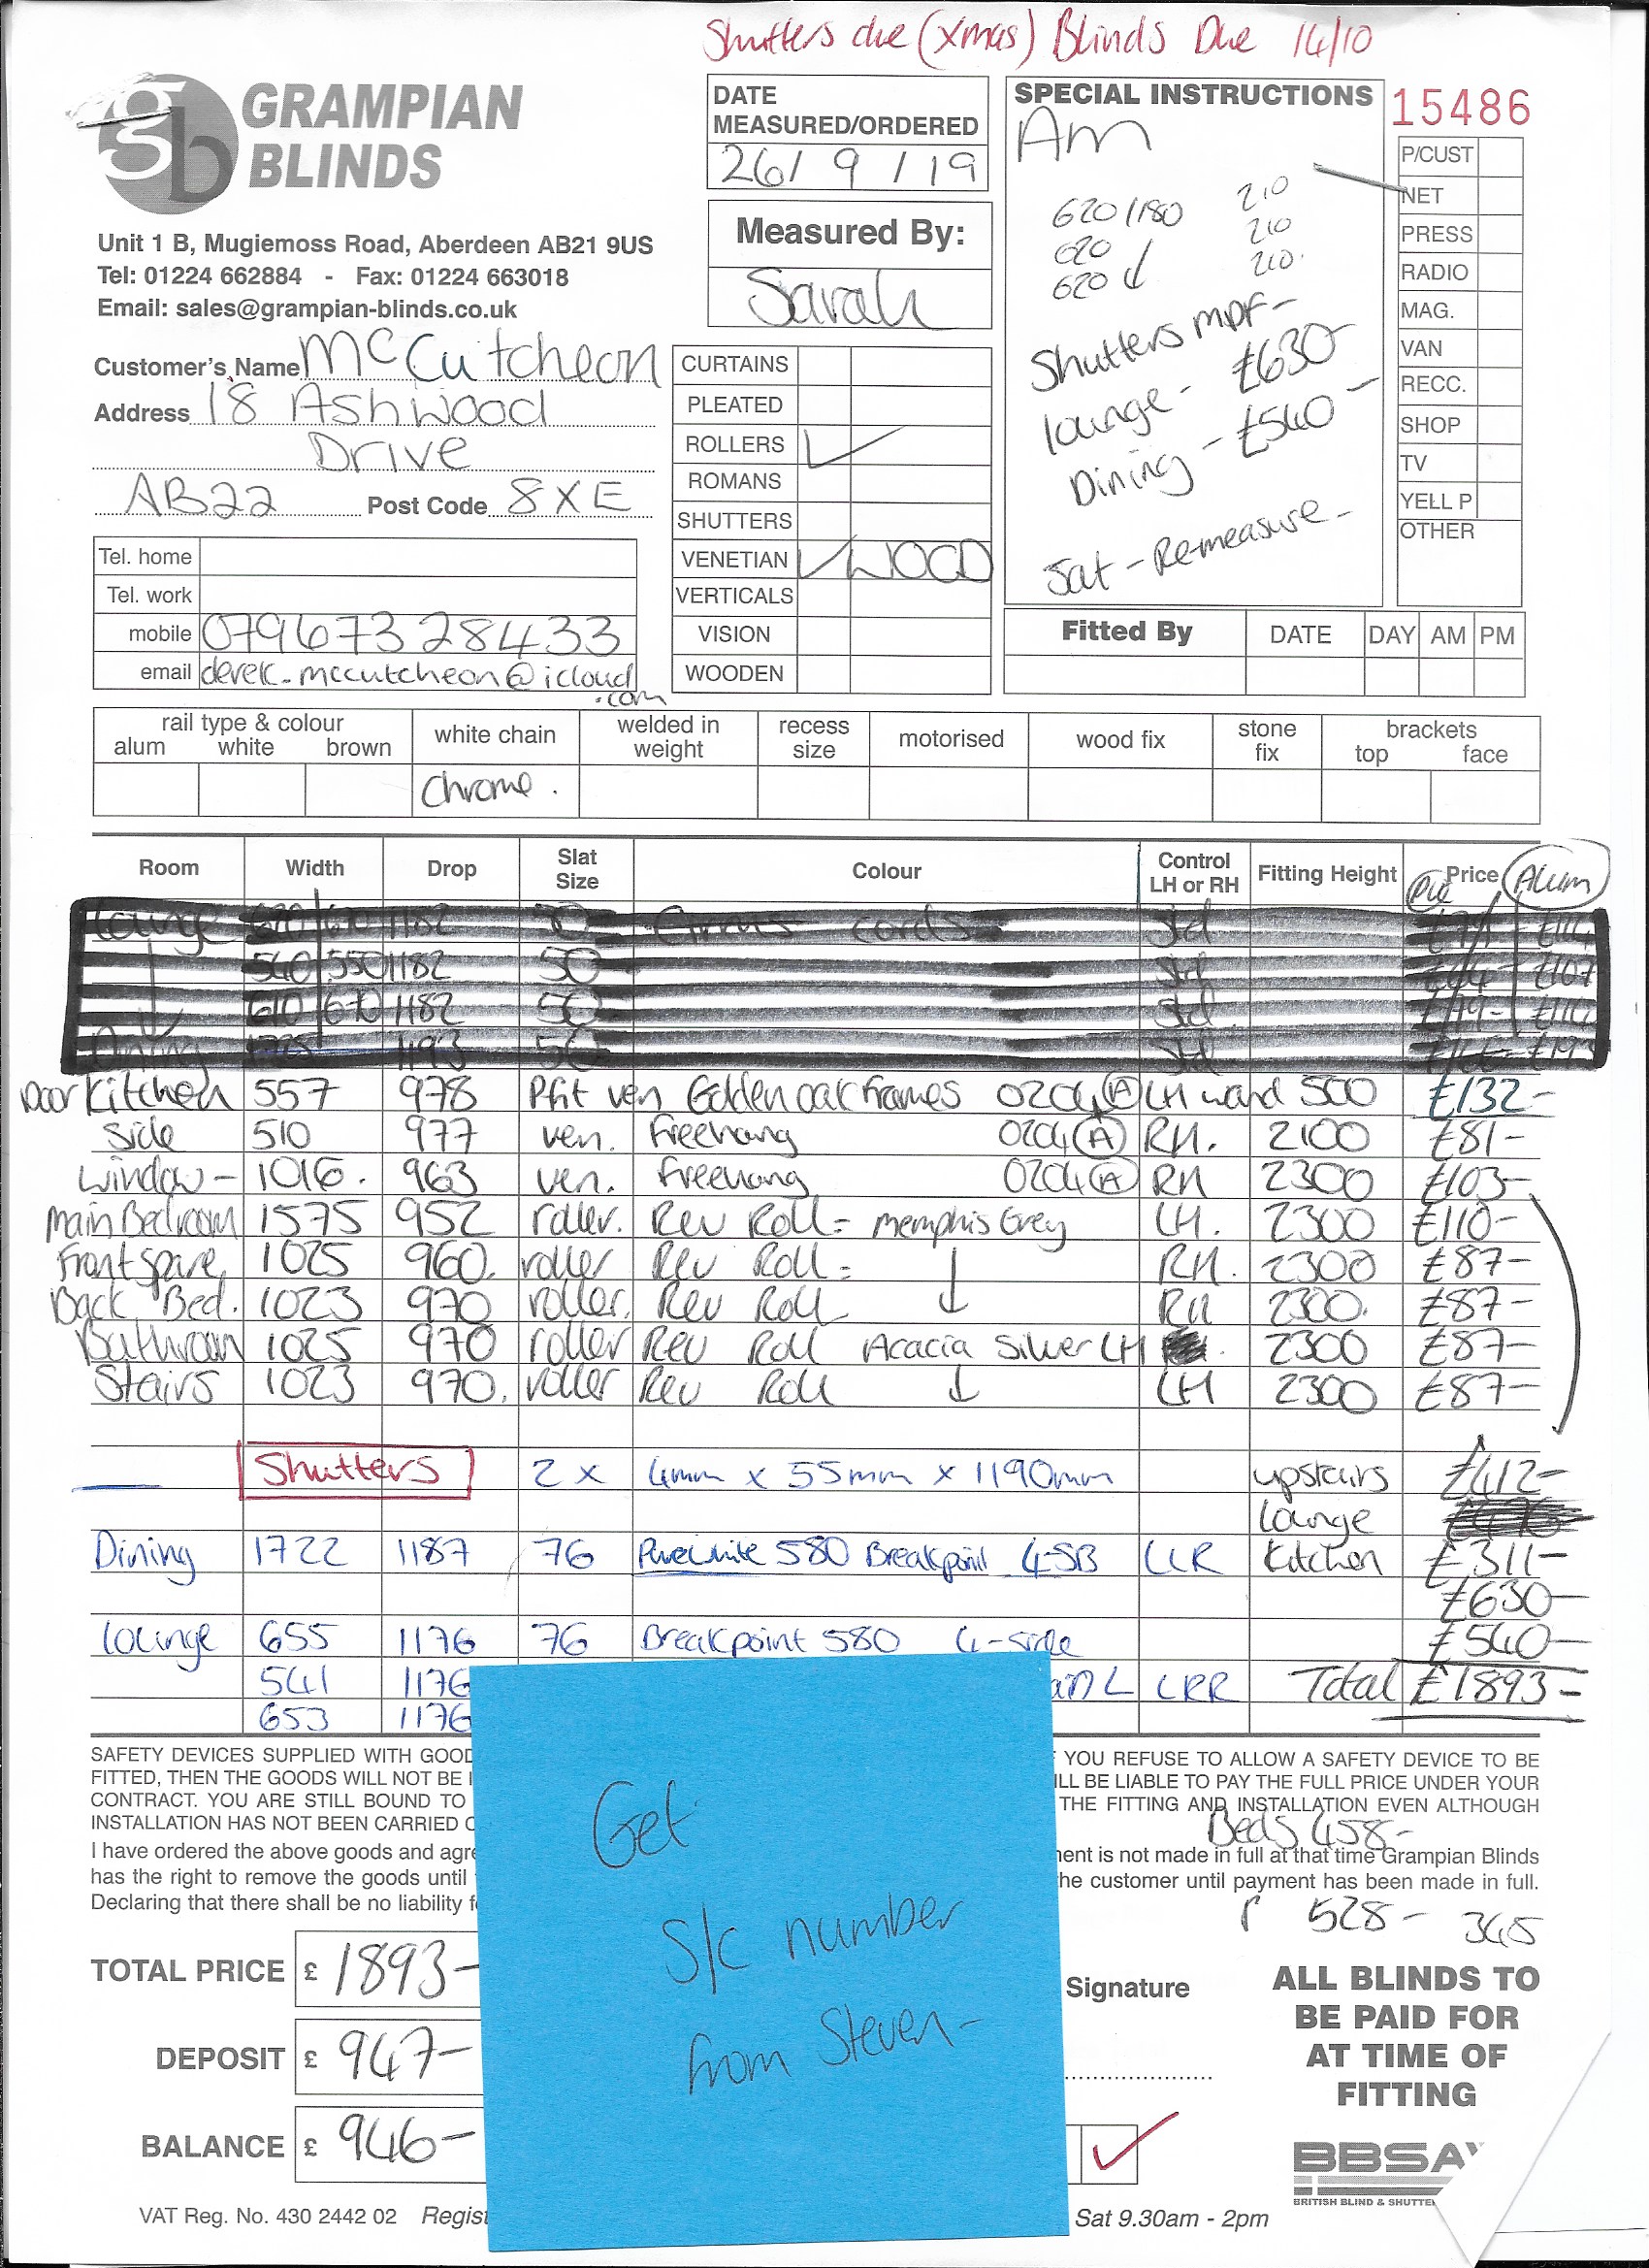 Shutters due (Xmas) Blinds Due 14/10
gb GRAMPIAN BLINDS
Unit 1 B, Mugiemoss Road, Aberdeen AB21 9US
Tel: 01224 662884 - Fax: 01224 663018
Email: sales@grampian-blinds.co.uk
Customer's Name McCutcheon
Address 18 Ashwood
Drive
AB22 Post Code 8XE
Tel. home
Tel. work
mobile 07967328433
email derek.mccutcheon@icloud
.com
DATE
MEASURED/ORDERED
26/9/19
Measured By:
Sarah
CURTAINS
PLEATED
ROLLERS ✓
ROMANS
SHUTTERS
VENETIAN ✓ WOOD
VERTICALS
VISION
WOODEN
SPECIAL INSTRUCTIONS
Am
620/180 210
620 210
620 210.
Shutters MDF-
lounge - £630-
Dining - £540-
Sat - Re-measure-
15486
P/CUST
NET
PRESS
RADIO
MAG.
VAN
RECC.
SHOP
TV
YELL P
OTHER
Fitted By DATE DAY AM PM
rail type & colour white chain welded in weight recess size motorised wood fix stone fix brackets
alum white brown top face
Chrome.
Room Width Drop Slat Size Colour Control LH or RH Fitting Height Price Alum
Lounge 1182 cords Std
540 550 1182 50 Std £107
610 1182 50 Std
Dining 1193 50 Std
Door Kitchen 557 978 Pfit ven Golden oak frames 0204 A LH wand 500 £132-
Side 510 977 ven. Freehang 0204 A RH. 2100 £81-
Window - 1016. 963 ven. Freehang 0204 A RH 2300 £103-
Main Bedroom 1575 952 roller. Rev Roll = Memphis Grey LH. 2300 £110-
Front spare 1025 960. roller Rev Roll = ↓ RH. 2300 £87-
Back Bed. 1023 970 roller. Rev Roll ↓ RH 2300. £87-
Bathroom 1025 970 roller Rev Roll Acacia Silver LH 2300 £87-
Stairs 1023 970. roller Rev Roll ↓ LH 2300 £87-
Shutters 2 x 4mm x 55mm x 1190mm upstairs £412-
lounge
Dining 1722 1187 76 Purewhite 580 Breakpoint 4-SB LLR Kitchen £311-
£630-
Lounge 655 1176 76 Breakpoint 580 4-side £540-
541 1176 LRR Total £1893-
653 1176
SAFETY DEVICES SUPPLIED WITH GOOD YOU REFUSE TO ALLOW A SAFETY DEVICE TO BE
FITTED, THEN THE GOODS WILL NOT BE I ILL BE LIABLE TO PAY THE FULL PRICE UNDER YOUR
CONTRACT. YOU ARE STILL BOUND TO THE FITTING AND INSTALLATION EVEN ALTHOUGH
INSTALLATION HAS NOT BEEN CARRIED O
Beds 458-
I have ordered the above goods and agre ent is not made in full at that time Grampian Blinds
has the right to remove the goods until he customer until payment has been made in full.
Declaring that there shall be no liability f
528- 365
Get
S/C number
from Steven-
TOTAL PRICE £ 1893-
DEPOSIT £ 947-
BALANCE £ 946-
Signature
✓
ALL BLINDS TO
BE PAID FOR
AT TIME OF
FITTING
BBSA
BRITISH BLIND & SHUTTE
VAT Reg. No. 430 2442 02 Regist Sat 9.30am - 2pm